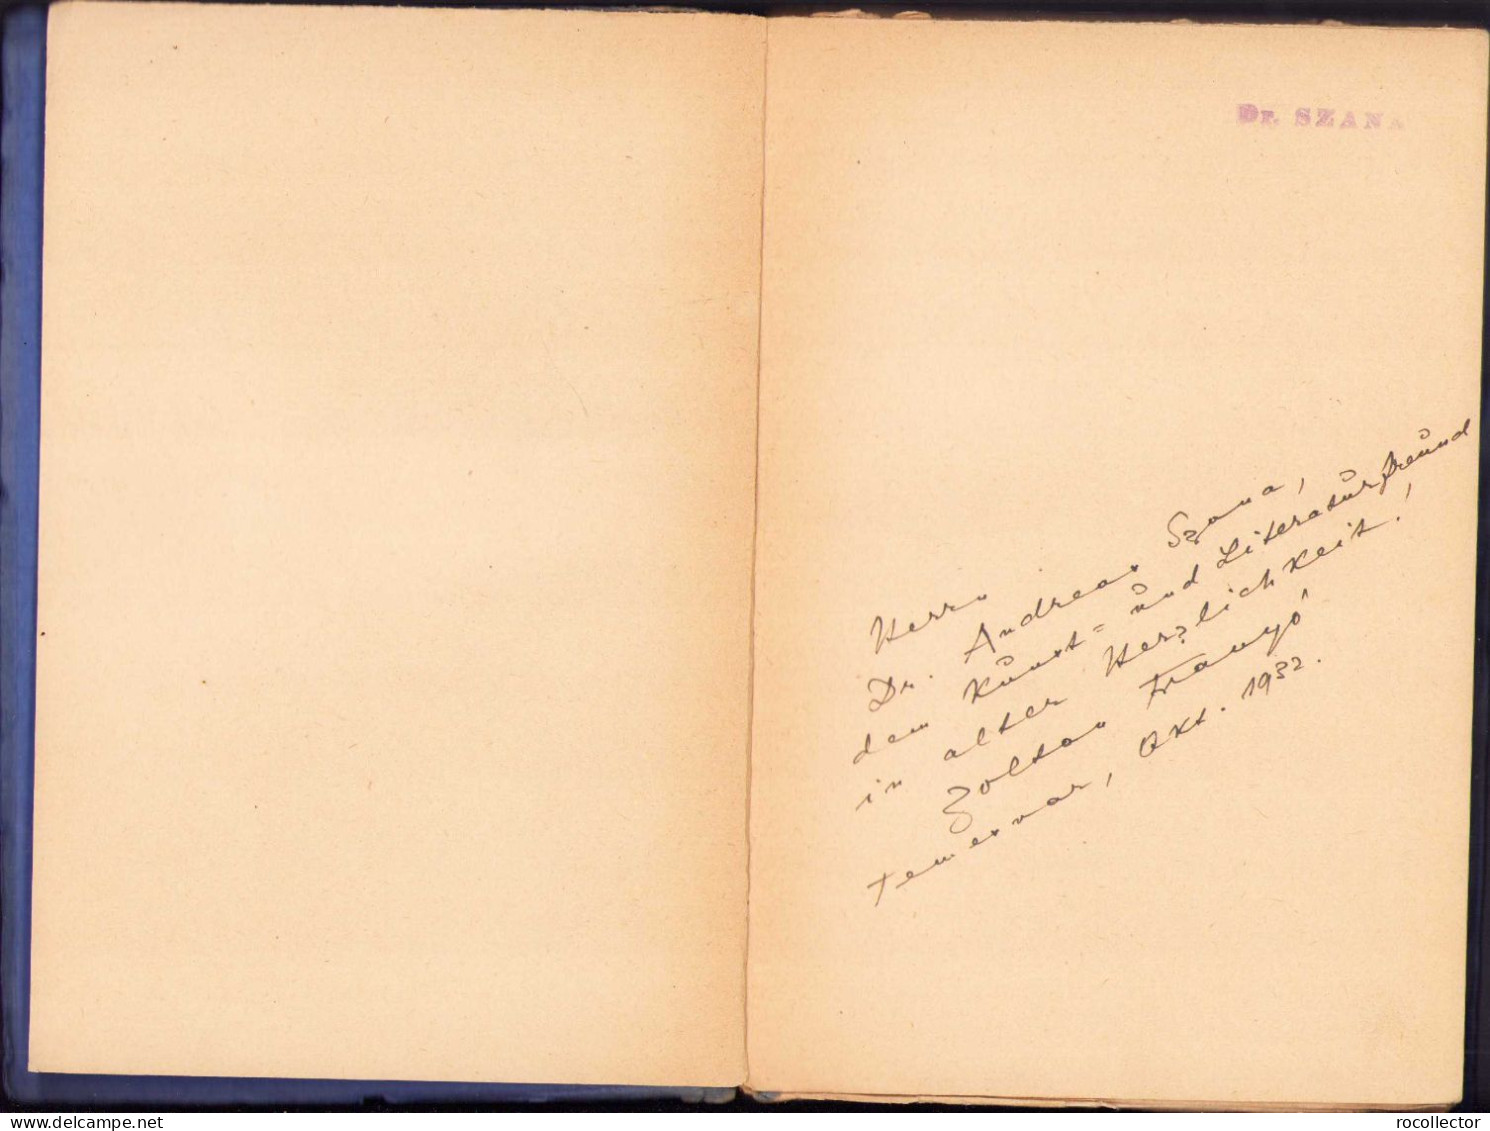 Dr. SZANA
Herrn
Dr. Andreas Szana,
dem Kunst= und Literaturfreund
in alter Herzlichkeit!
Zoltan Franyó
Temesvar, Okt. 1932.
rocollector